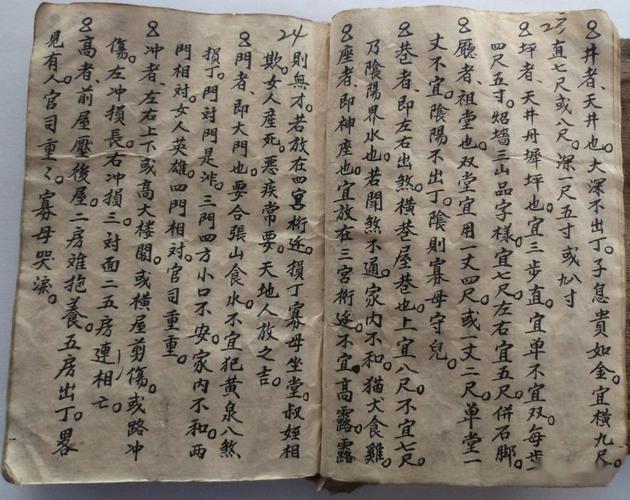 井者、天井也。大深不出丁。子息貴如金。宜横九尺。
直七尺或八尺。深一尺五寸或九八寸
坪者、天井丹墀坪也。宜三步直。宜单不宜双。每步
四尺五寸。照墙三山品字樣。宜七尺左右宜五尺。併石脚。
廳者、祖堂也。双堂宜用一丈四尺。或一丈二尺单堂一
丈不宜。陰陽不出丁。陰則寡母守兒。
巷者、即左右出煞。横巷屋巷也。上宜八尺不宜七尺。
乃陰陽界水也。若閉煞不通。家内不和。猫犬食雞。
座者、即神座也。宜放在三宫桁近。不宜高露。露
24
則無才。若放在四宫桁近。損丁寡母坐堂。叔姪相
欺。女人産死。悪疾常要。天地人放之吉。
門者、即大門也。要合張山食水。不宜犯黄泉八煞
損丁。門对門是非。三門四方小口不安。家内不和。两
門相对。女人英雄。四門相对。官司重重。
冲者、左右上下或高大楼閣。或横屋剪傷。或路冲
傷。左冲損長。右冲損三。対面二五房連相亡。
高者、前屋壓後屋。二房难抱養。五房出丁。畧
見有人。官司重々。寡母哭淚。